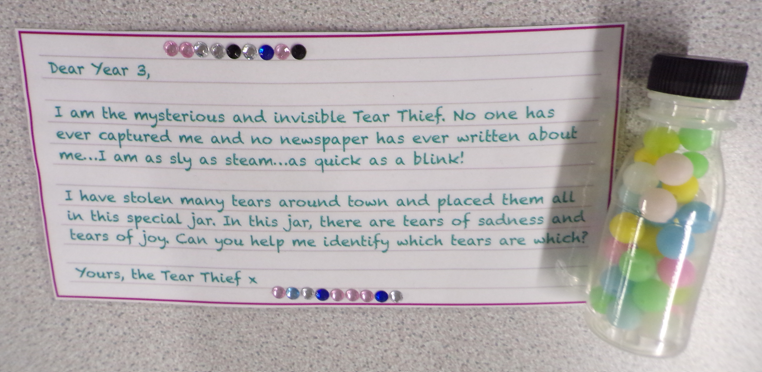 Dear Year 3,
I am the mysterious and invisible Tear Thief. No one has
ever captured me and no newspaper has ever written about
me...I am as sly as steam...as quick as a blink!
I have stolen many tears around town and placed them all
in this special jar. In this jar, there are tears of sadness and
tears of joy. Can you help me identify which tears are which?
Yours, the Tear Thief x